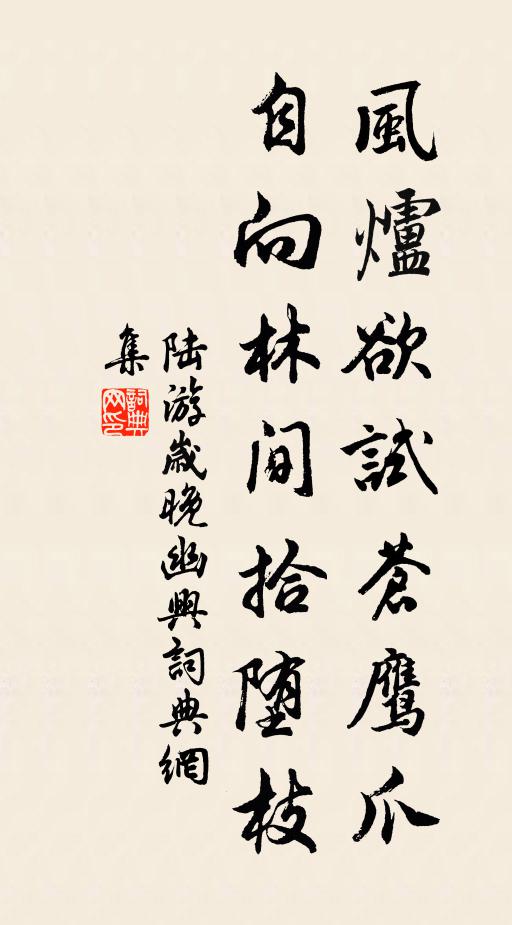 風爐欲試蒼鷹爪
自向林間拾堕枝
陆游歲晚幽興詞典網
集
詞典网印